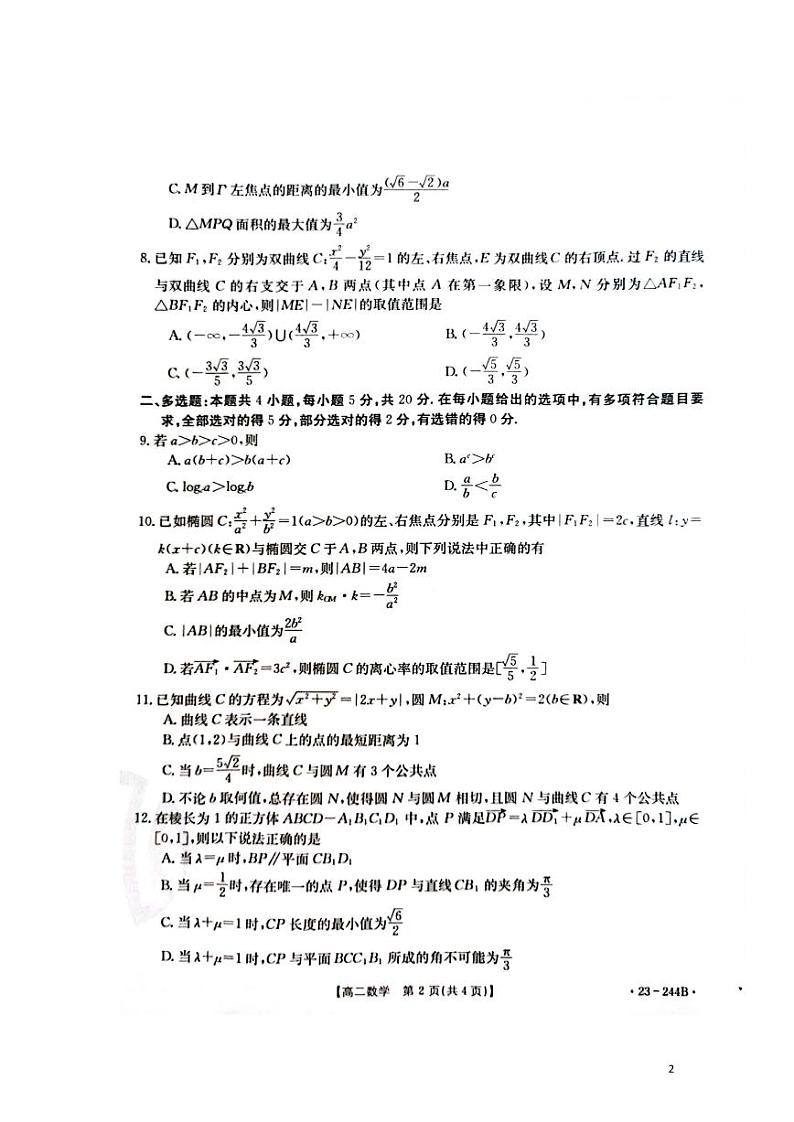 C. M 到 Γ 左焦点的距离的最小值为 (√6-√2)a/2
D. △MPQ 面积的最大值为 3/4 a²
8. 已知 F₁,F₂ 分别为双曲线 C: x²/4 - y²/12 =1 的左、右焦点,E 为双曲线 C 的右顶点. 过 F₂ 的直线
与双曲线 C 的右支交于 A,B 两点(其中点 A 在第一象限),设 M,N 分别为△AF₁F₂,
△BF₁F₂ 的内心,则|ME|-|NE|的取值范围是
A. (-∞,-4√3/3)∪(4√3/3,+∞) B. (-4√3/3,4√3/3)
C. (-3√3/5,3√3/5) D. (-√5/3,√5/3)
二、多选题:本题共 4 小题,每小题 5 分,共 20 分. 在每小题给出的选项中,有多项符合题目要
求,全部选对的得 5 分,部分选对的得 2 分,有选错的得 0 分.
9. 若 a>b>c>0,则
A. a(b+c)>b(a+c) B. aᶜ>bᶜ
C. log꜀a>log꜀b D. a/b<b/c
10. 已如椭圆 C: x²/a²+y²/b²=1(a>b>0)的左、右焦点分别是 F₁,F₂,其中|F₁F₂|=2c,直线 l:y=
k(x+c)(k∈R)与椭圆交 C 于 A,B 两点,则下列说法中正确的有
A. 若|AF₂|+|BF₂|=m,则|AB|=4a-2m
B. 若 AB 的中点为 M,则 k_OM·k=-b²/a²
C. |AB|的最小值为2b²/a
D. 若AF₁→·AF₂→=3c²,则椭圆 C 的离心率的取值范围是[√5/5,1/2]
11. 已知曲线 C 的方程为√(x²+y²)=|2x+y|,圆 M:x²+(y-b)²=2(b∈R),则
A. 曲线 C 表示一条直线
B. 点(1,2)与曲线 C 上的点的最短距离为 1
C. 当 b=5√2/4时,曲线 C 与圆 M 有 3 个公共点
D. 不论 b 取何值,总存在圆 N,使得圆 N 与圆 M 相切,且圆 N 与曲线 C 有 4 个公共点
12. 在棱长为 1 的正方体 ABCD-A₁B₁C₁D₁ 中,点 P 满足DP→=λDD₁→+μDA→,λ∈[0,1],μ∈
[0,1],则以下说法正确的是
A. 当 λ=μ 时,BP∥平面 CB₁D₁
B. 当 μ=1/2时,存在唯一的点 P,使得 DP 与直线 CB₁ 的夹角为π/3
C. 当 λ+μ=1 时,CP 长度的最小值为√6/2
D. 当 λ+μ=1 时,CP 与平面 BCC₁B₁ 所成的角不可能为π/3
【高二数学 第 2 页(共 4 页)】 ·23-244B·
2